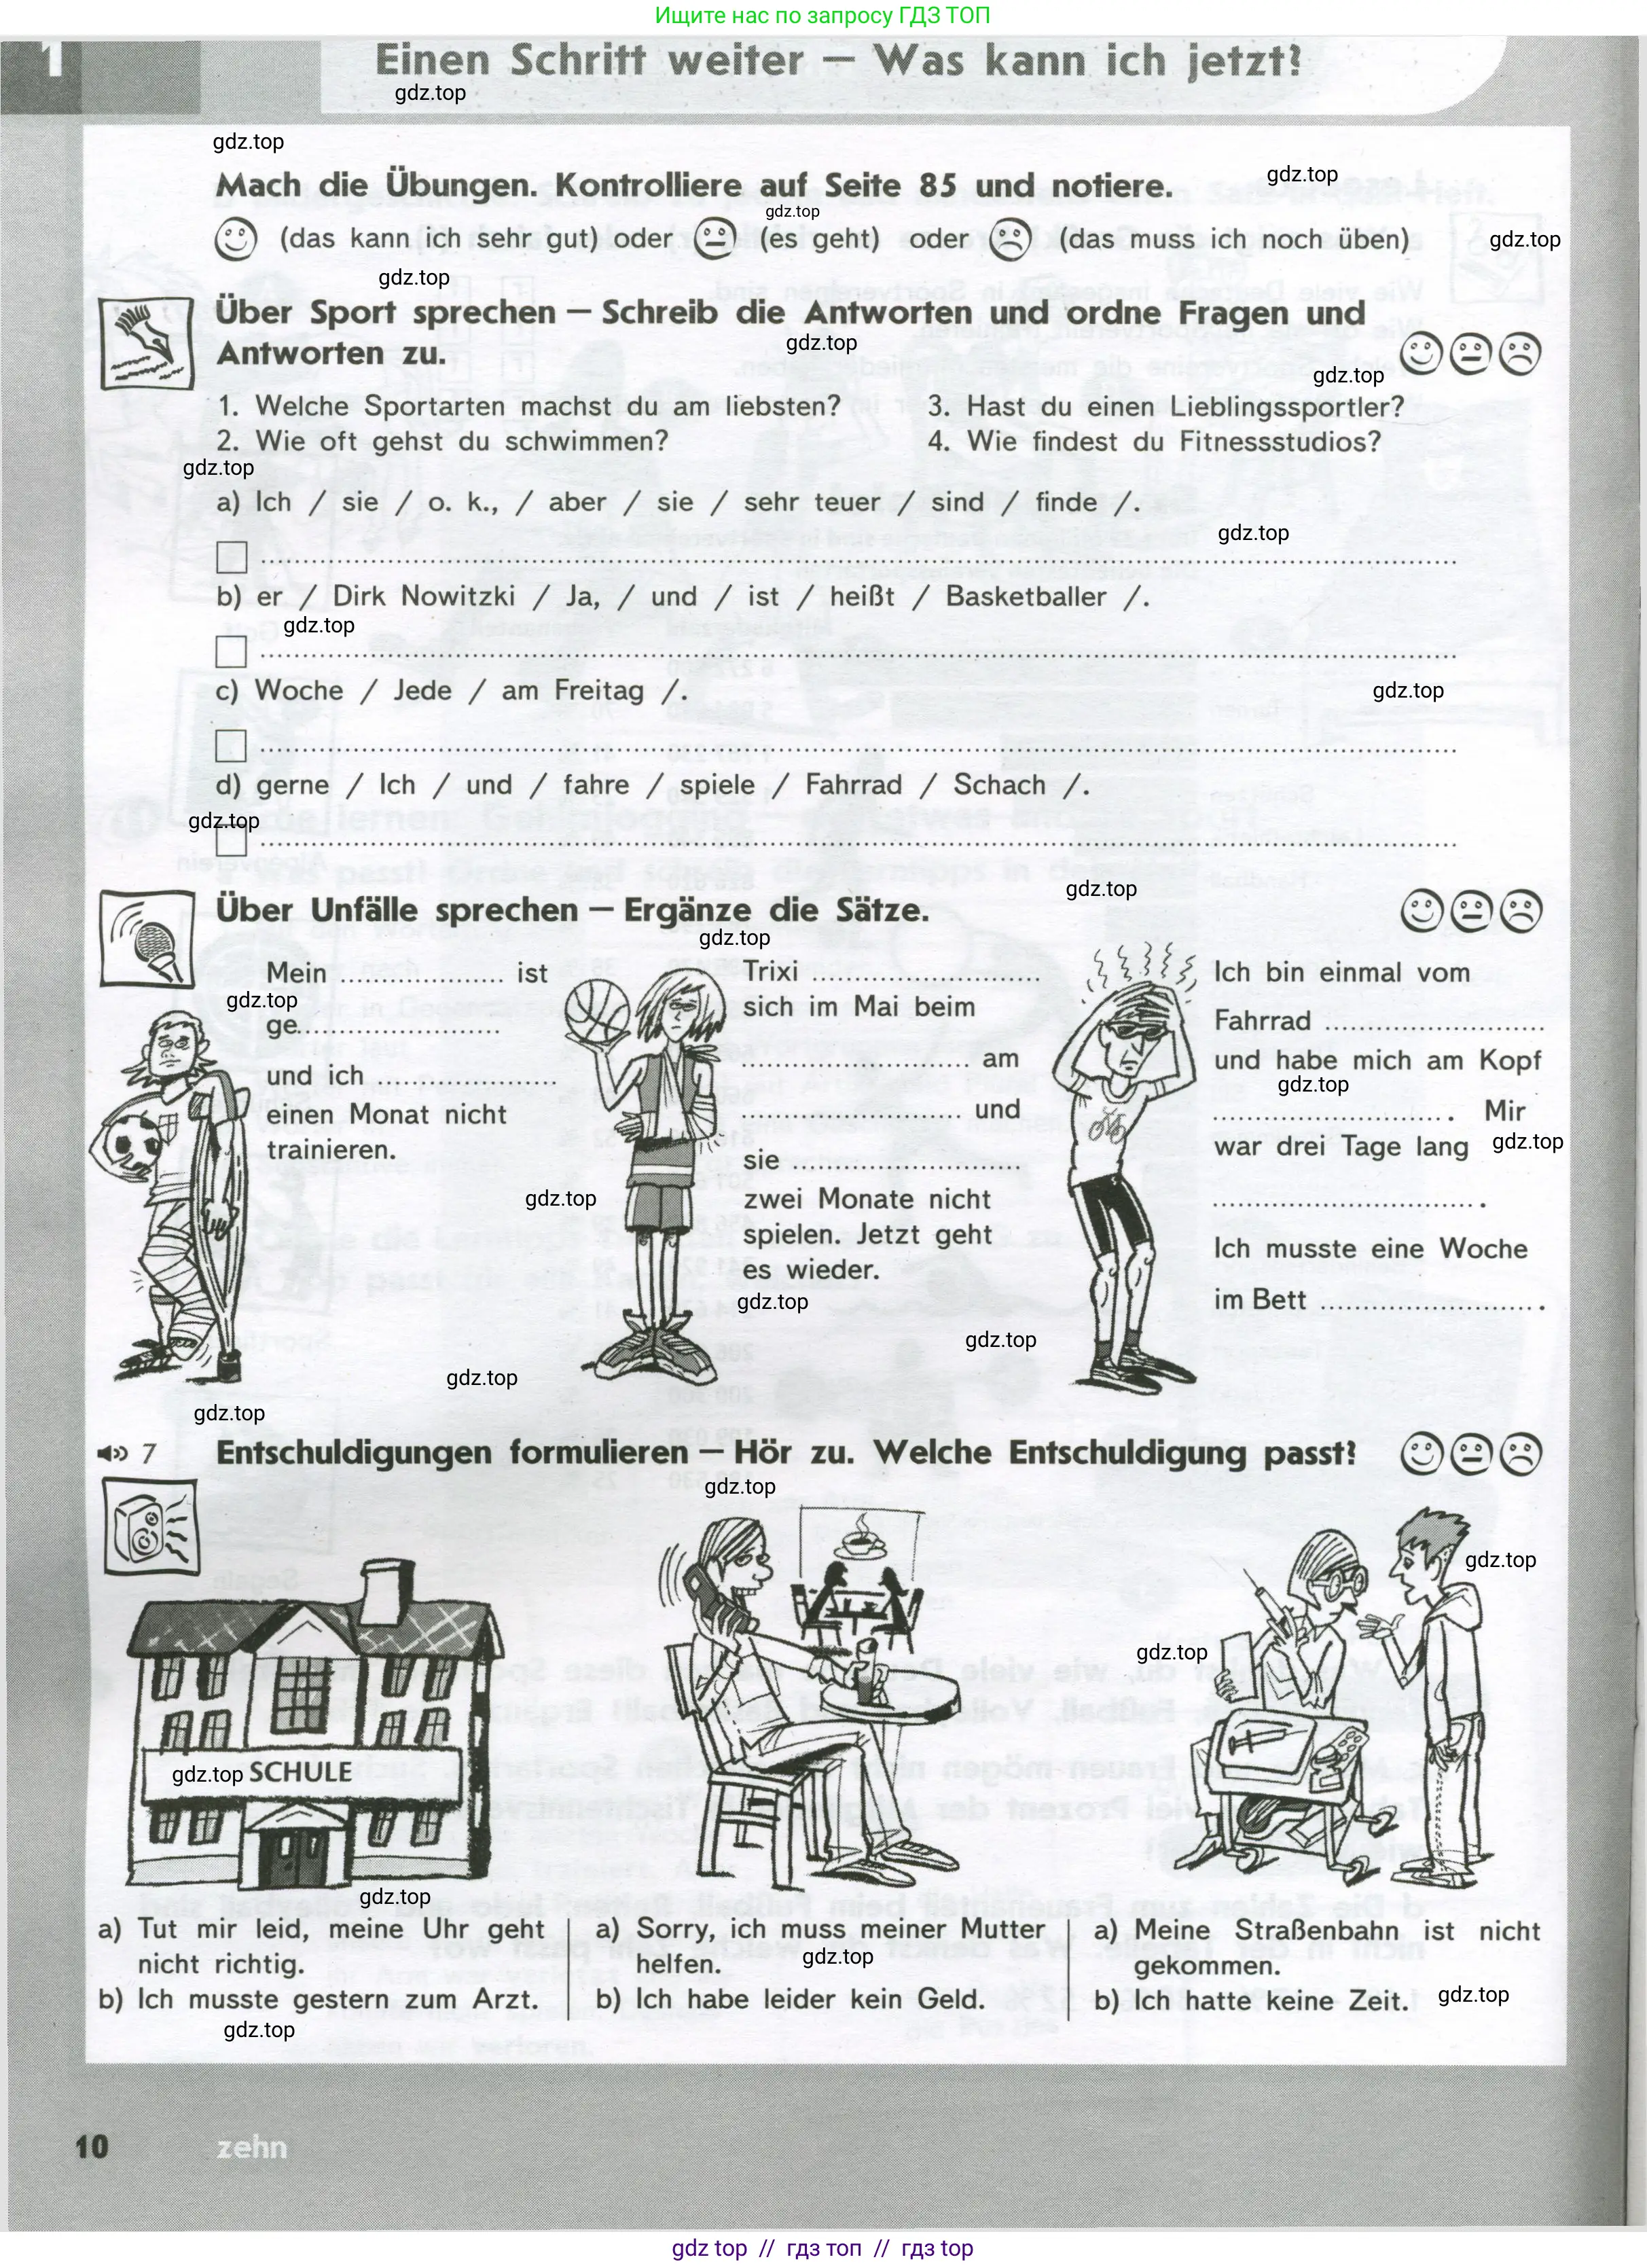 Ищите нас по запросу ГДЗ ТОП
1
Einen Schritt weiter – Was kann ich jetzt?
gdz.top
gdz.top
Mach die Übungen. Kontrolliere auf Seite 85 und notiere.
gdz.top
gdz.top
(das kann ich sehr gut) oder (es geht) oder (das muss ich noch üben)
gdz.top
gdz.top
Über Sport sprechen – Schreib die Antworten und ordne Fragen und
Antworten zu.
gdz.top
gdz.top
1. Welche Sportarten machst du am liebsten?
2. Wie oft gehst du schwimmen?
3. Hast du einen Lieblingssportler?
4. Wie findest du Fitnessstudios?
gdz.top
a) Ich / sie / o. k., / aber / sie / sehr teuer / sind / finde /.
gdz.top
b) er / Dirk Nowitzki / Ja, / und / ist / heißt / Basketballer /.
gdz.top
c) Woche / Jede / am Freitag /.
gdz.top
d) gerne / Ich / und / fahre / spiele / Fahrrad / Schach /.
gdz.top
gdz.top
Über Unfälle sprechen – Ergänze die Sätze.
gdz.top
Mein .................... ist
gdz.top
ge.........................
und ich ......................
einen Monat nicht
trainieren.
Trixi ............................
sich im Mai beim
............................ am
........................... und
sie ............................
zwei Monate nicht
spielen. Jetzt geht
es wieder.
gdz.top
gdz.top
Ich bin einmal vom
Fahrrad ...........................
und habe mich am Kopf
gdz.top
.............................. . Mir
war drei Tage lang
gdz.top
................................ .
Ich musste eine Woche
im Bett .......................... .
gdz.top
gdz.top
gdz.top
7
Entschuldigungen formulieren – Hör zu. Welche Entschuldigung passt?
gdz.top
gdz.top
gdz.top
gdz.top
SCHULE
gdz.top
a) Tut mir leid, meine Uhr geht
nicht richtig.
b) Ich musste gestern zum Arzt.
gdz.top
a) Sorry, ich muss meiner Mutter
helfen.
gdz.top
b) Ich habe leider kein Geld.
a) Meine Straßenbahn ist nicht
gekommen.
b) Ich hatte keine Zeit.
gdz.top
10
zehn
gdz top // гдз топ // гдз top